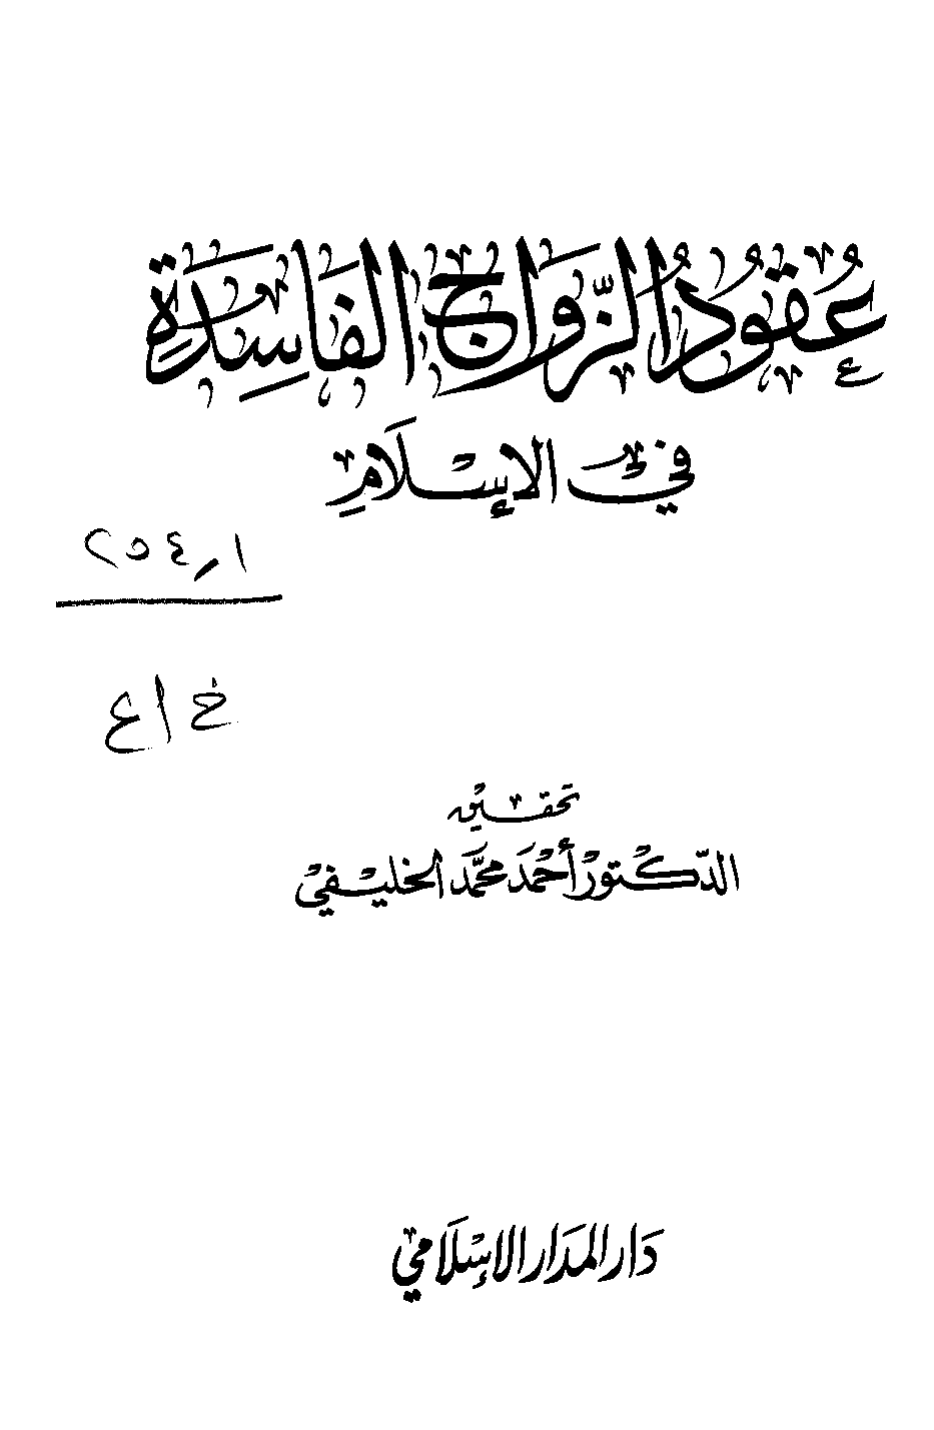 عُقُودُ الزَّوَاجِ الفَاسِدَةِ
فِي الإِسْلَامِ
٢٥٤٫١
خ ا ع
تحقيق
الدّكتور أحمَد محمَّد الخليفي
دَار المدَار الإسْلَامي